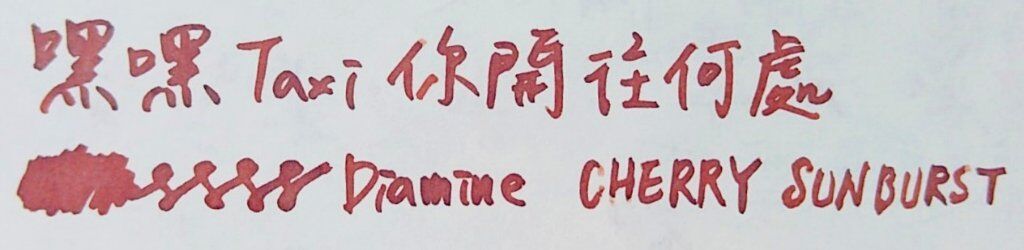 嘿嘿 Taxi 你開往何處
Diamine CHERRY SUNBURST